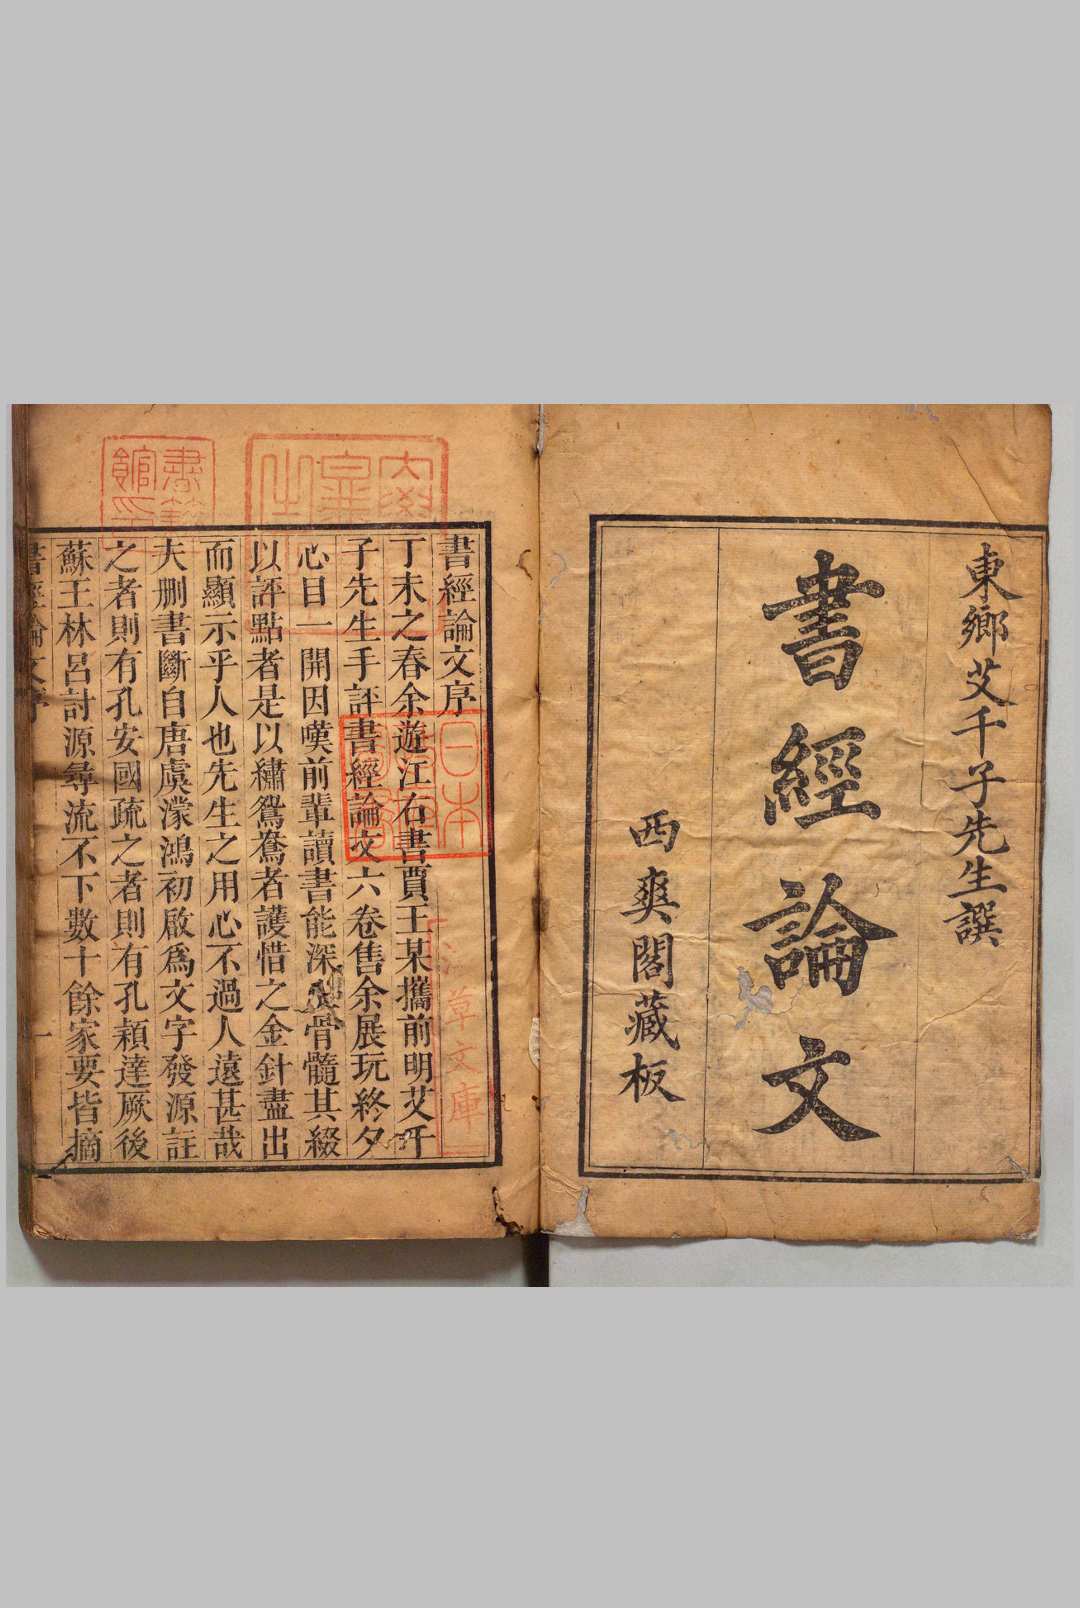 東鄉艾千子先生譔
書經論文
西爽閣藏板
書經論文序
丁未之春余遊江右書賈王某攜前明艾千
子先生手評書經論文六卷售余展玩終夕
心目一開因嘆前輩讀書能深骨髓其綴
以評點者是以繡鴛鴦者護惜之金針盡出
而顯示乎人也先生之用心不過人遠甚哉
夫刪書斷自唐虞濛鴻初啟為文字發源註
之者則有孔安國疏之者則有孔穎達厥後
蘇王林呂討源尋流不下數十餘家要皆摘
書經論文序
一
日本
草文庫